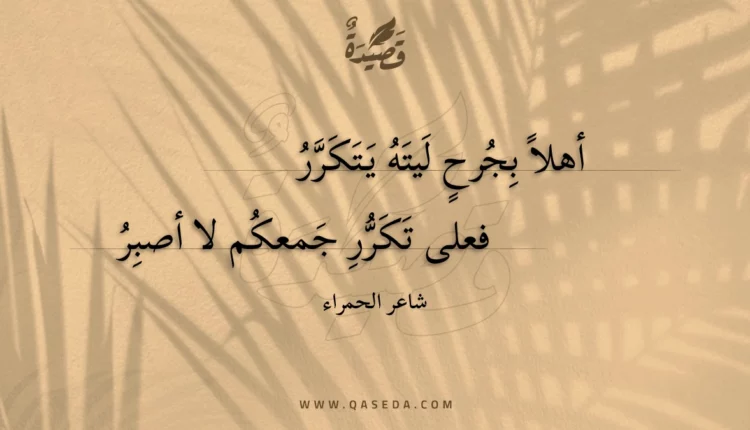 قَصِيْدَةٌ
أهلاً بِجُرحٍ لَيتَهُ يَتَكَرَّرُ
فعلى تَكَرُّرِ جَمعكُم لا أصبِرُ
شاعر الحمراء
WWW.QASEDA.COM